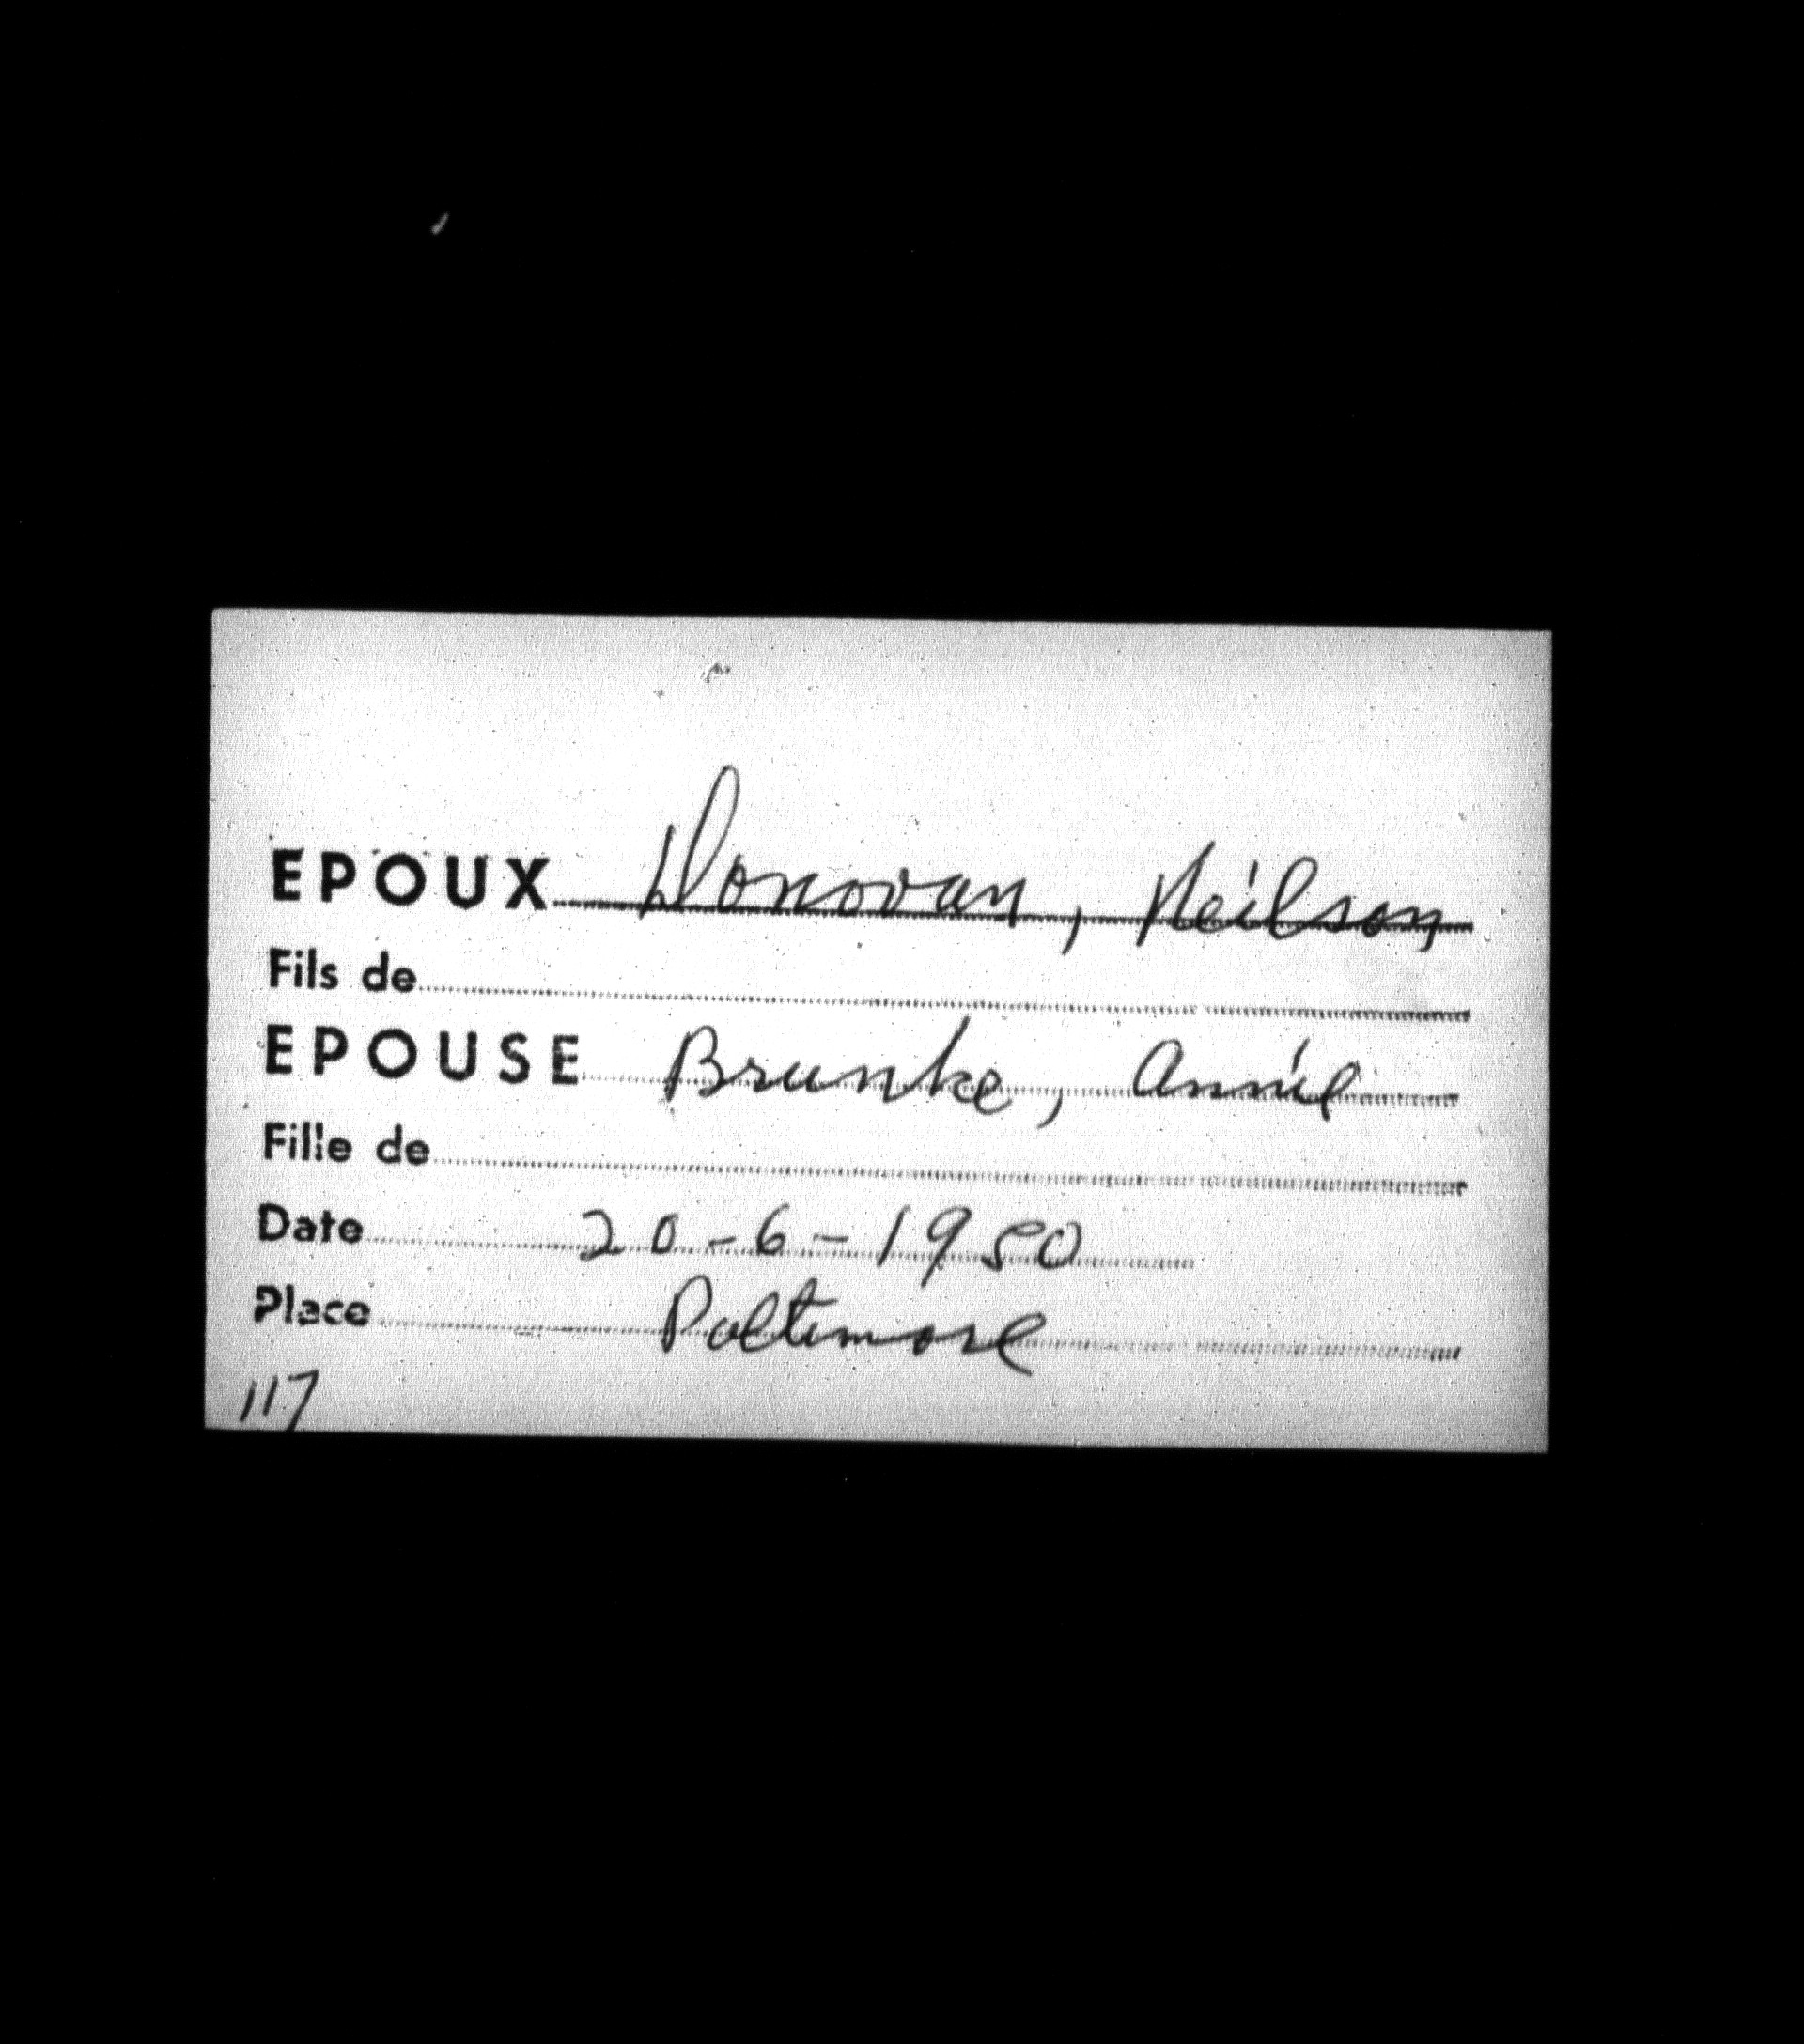 EPOUX Donovan, Neilson
Fils de
EPOUSE Brunke, Annie
Fille de
Date 20-6-1950
Place Poltimore
117